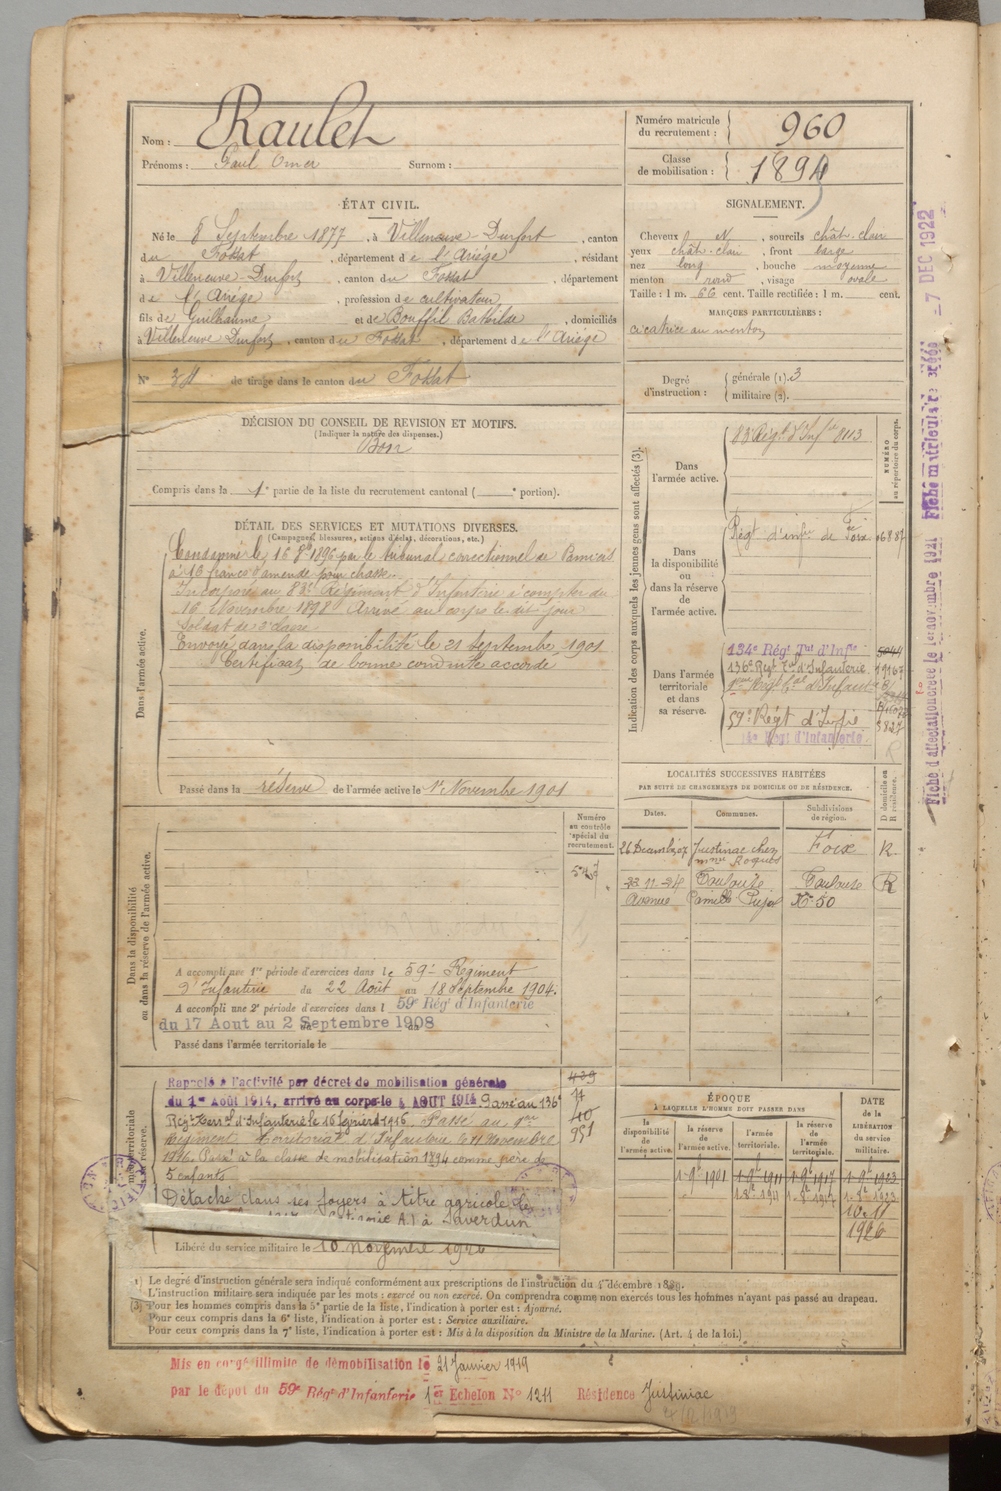 Nom : Raulet
Prénoms : Paul Omer Surnom :
Numéro matricule du recrutement : 960
Classe de mobilisation : 1894
ÉTAT CIVIL.
Né le 8 Septembre 1877, à Villeneuve Durfort, canton
du Fossat, département de l'Ariège, résidant
à Villeneuve-Durfort, canton du Fossat, département
de l'Ariège, profession de cultivateur,
fils de Guilhaume et de Bouffil Bathilde, domiciliés
à Villeneuve Durfort, canton du Fossat, département de l'Ariège
N° 34 de tirage dans le canton du Fossat
SIGNALEMENT.
Cheveux N, sourcils chât-clair
yeux chât-clair, front large
nez long, bouche moyenne
menton rond, visage ovale
Taille : 1 m. 66 cent. Taille rectifiée : 1 m. cent.
MARQUES PARTICULIÈRES :
cicatrice au menton
Degré d'instruction : générale (1). 3
militaire (2).
DÉCISION DU CONSEIL DE REVISION ET MOTIFS.
(Indiquer la nature des dispenses.)
Bon
Compris dans la 1e partie de la liste du recrutement cantonal ( e portion).
DÉTAIL DES SERVICES ET MUTATIONS DIVERSES.
(Campagnes, blessures, actions d'éclat, décorations, etc.)
Dans l'armée active.
Condamné le 16 8bre 1896 par le tribunal correctionnel de Pamiers
à 16 francs d'amende pour chasse.
Incorporé au 83e Régiment d'Infanterie à compter du
16 Novembre 1898. Arrivé au corps le dit jour
Soldat de 2e classe.
Envoyé dans la disponibilité le 21 Septembre 1901
Certificat de bonne conduite accordé
Passé dans la réserve de l'armée active le 1er Novembre 1901
Indication des corps auxquels les jeunes gens sont affectés (3).
NUMÉRO au répertoire du corps.
Dans l'armée active.
83e Régt d'Infrie 8113
Dans la disponibilité ou dans la réserve de l'armée active.
Régt d'infie de Foix 06887
Dans l'armée territoriale et dans sa réserve.
134e Régt Tal d'Infie 5044
136e Régt Tal d'Infanterie 19167
9me Régt Tal d'Infant
59e Régt d'Infie 3827
14e Régt d'Infanterie
LOCALITÉS SUCCESSIVES HABITÉES
PAR SUITE DE CHANGEMENTS DE DOMICILE OU DE RÉSIDENCE.
Dates. Communes. Subdivisions de région. D domicile ou R résidence.
26 Décembre 07 Justiniac chez Mme Roques Foix R.
22-11-24 Toulouse Toulouse R
Avenue Camille Pujol N° 50
Dans la disponibilité ou dans la réserve de l'armée active.
Numéro au contrôle spécial du recrutement.
A accompli une 1re période d'exercices dans le 59e Régiment
d'Infanterie du 22 Août au 18 Septembre 1904.
A accompli une 2e période d'exercices dans l 59e Régt d'Infanterie
du 17 Aout au 2 Septembre 1908
Passé dans l'armée territoriale le
Rappelé à l'activité par décret de mobilisation générale
du 1er Août 1914, arrivé au corps le 4 AOUT 1914 Passé au 136e
Régt Terral d'Infanterie le 16 février 1916. Passé au 9me
Régiment territorial d'Infanterie le 11 Novembre
1916. Passé à la classe de mobilisation 1894 comme père de
5 enfants
Détaché dans ses foyers à titre agricole le
à Saverdun
Libéré du service militaire le 10 novembre 1926
439
40
951
ÉPOQUE
À LAQUELLE L'HOMME DOIT PASSER DANS
la disponibilité de l'armée active.
la réserve de l'armée active.
l'armée territoriale.
la réserve de l'armée territoriale.
DATE de la LIBÉRATION du service militaire.
1-9t 1901 1-9t 1911 1-9t 1917 1-9t 1923
10-11
1926
(1) Le degré d'instruction générale sera indiqué conformément aux prescriptions de l'instruction du 4 décembre 1889.
L'instruction militaire sera indiquée par les mots : exercé ou non exercé. On comprendra comme non exercés tous les hommes n'ayant pas passé au drapeau.
(3) Pour les hommes compris dans la 5e partie de la liste, l'indication à porter est : Ajourné.
Pour ceux compris dans la 6e liste, l'indication à porter est : Service auxiliaire.
Pour ceux compris dans la 7e liste, l'indication à porter est : Mis à la disposition du Ministre de la Marine. (Art. 4 de la loi.)
Mis en congé illimité de démobilisation le 21 Janvier 1919
par le dépot du 59e Régt d'Infanterie 1er Echelon N° 1211 Résidence Justiniac
Fiche d'affectation créée le 1er novembre 1921 Fiche matriculaire créée 7 DEC 1922